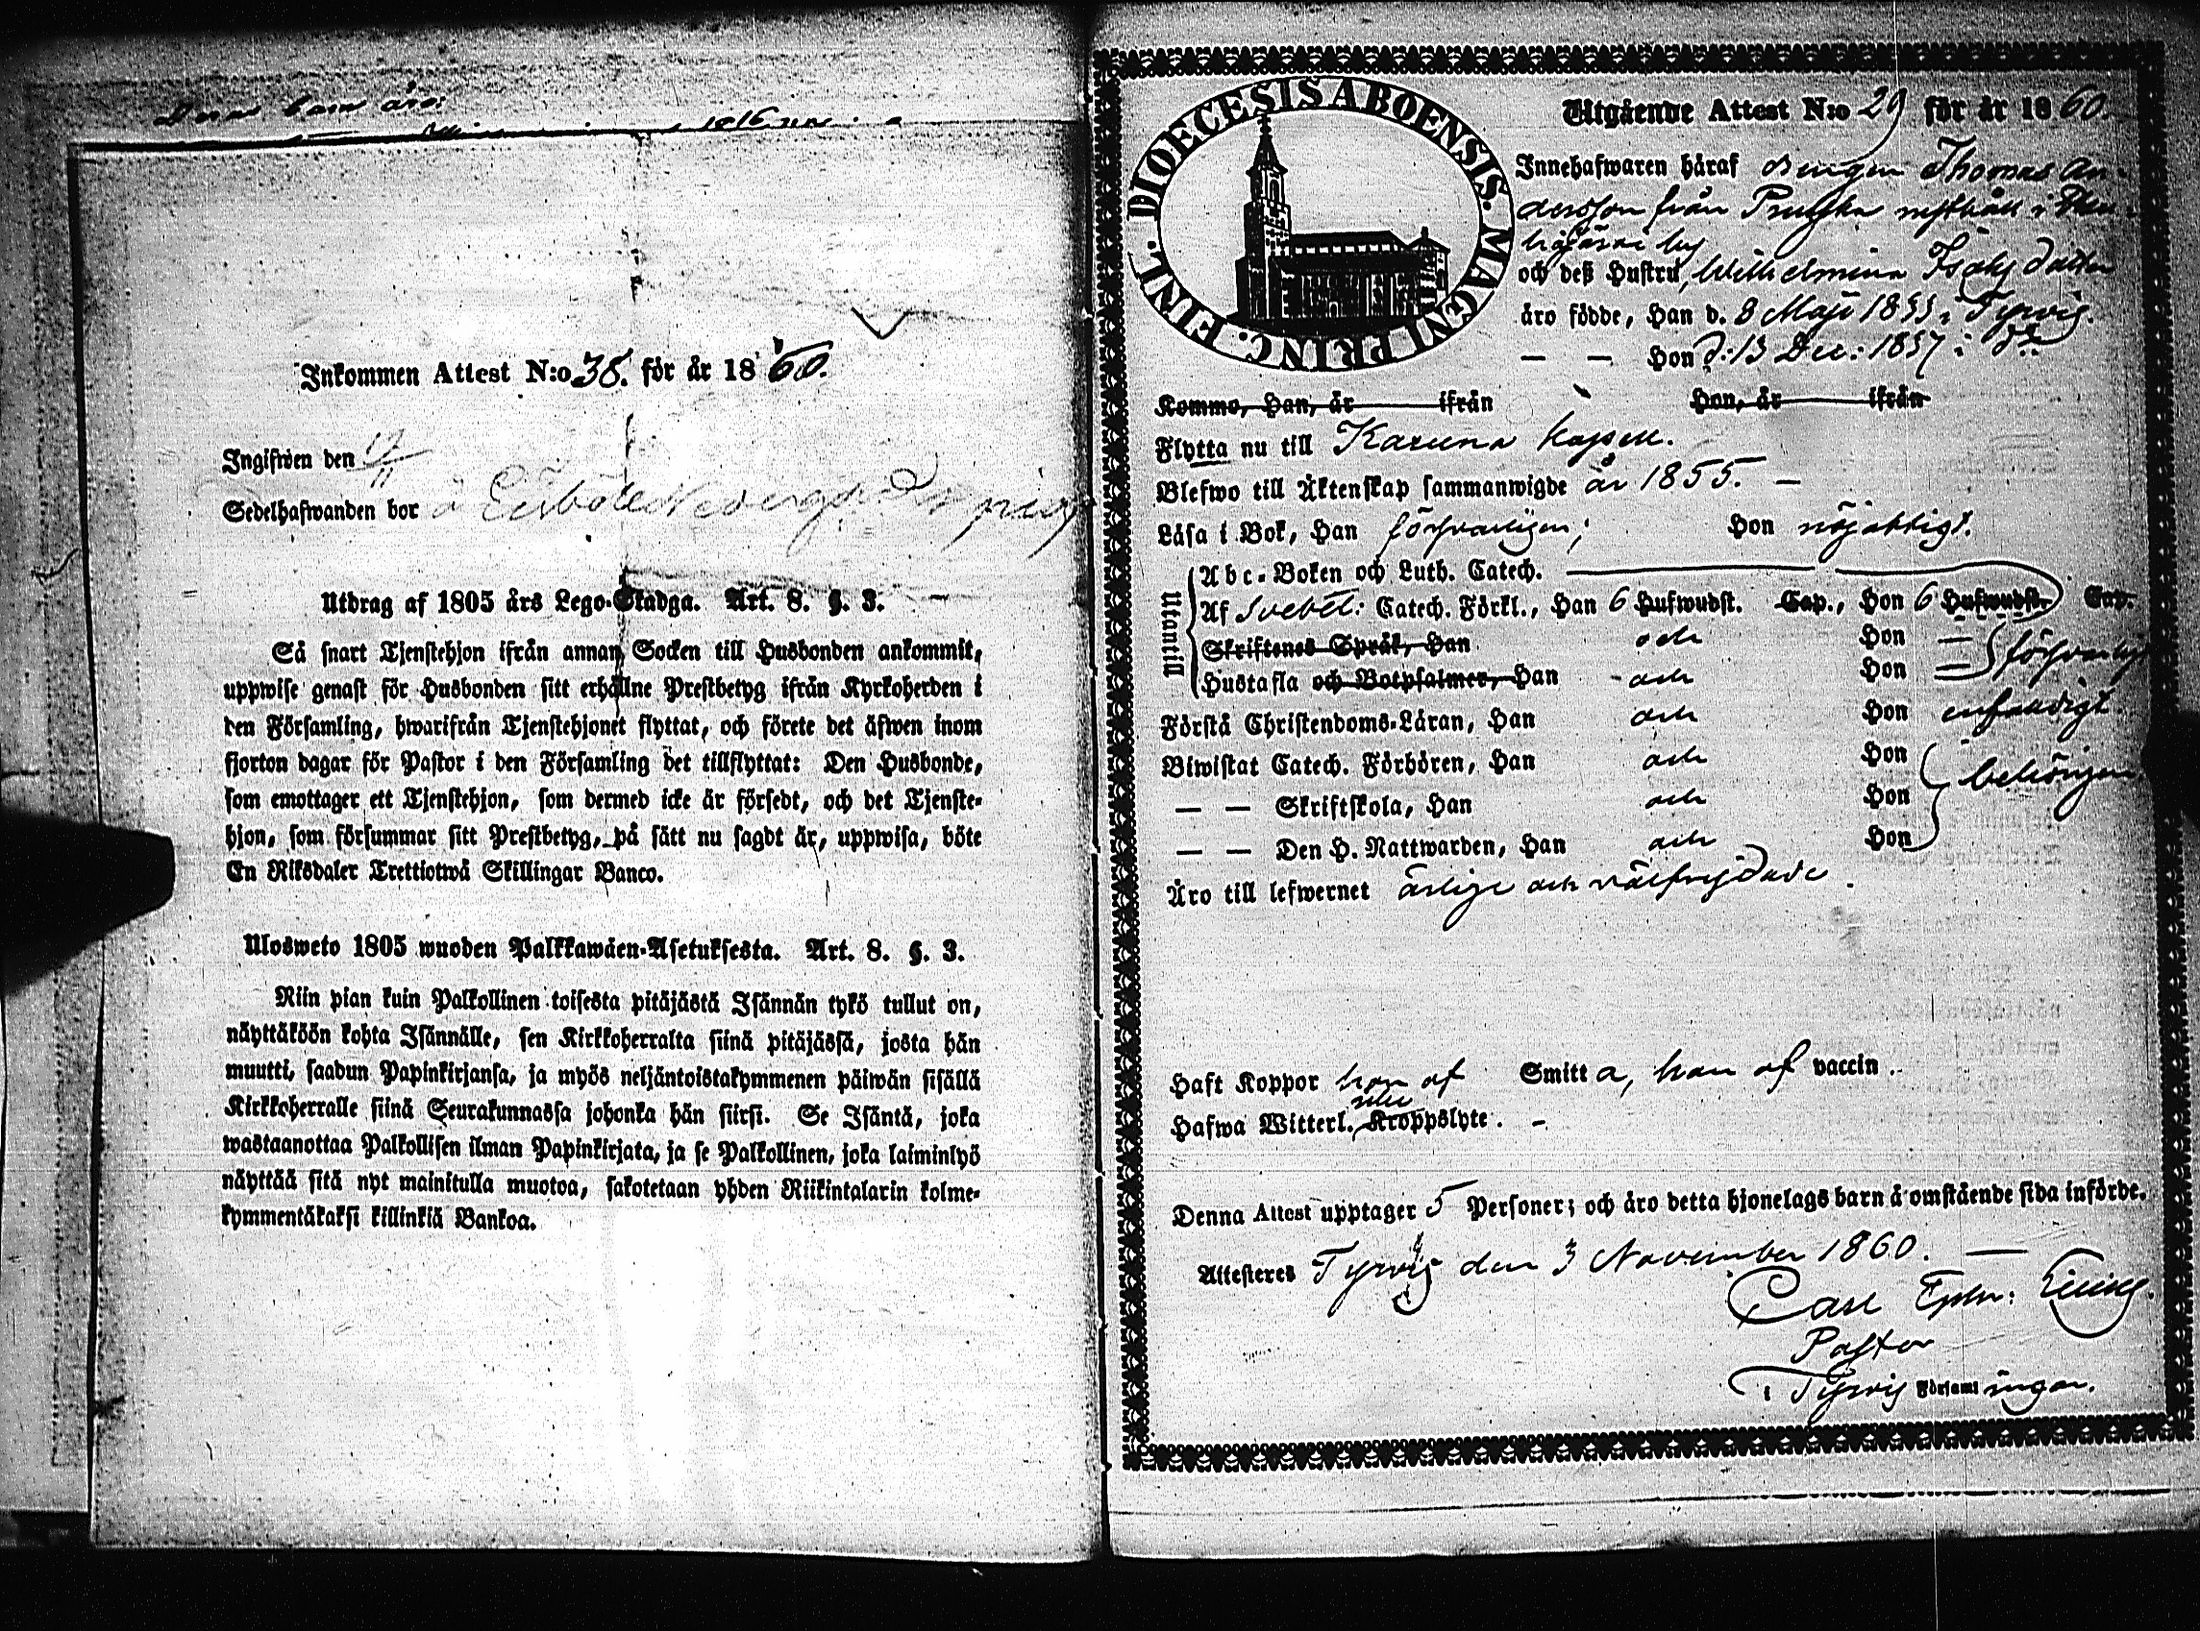 Deras barn äro:
Inkommen Attest N:o 38. för år 18 60.
Ingifwen den 17/11
Sedelhafwanden bor å
Utdrag af 1805 års Lego-Stadga. Art. 8. §. 3.
Så snart Tjenstehjon ifrån annan Socken till Husbonden ankommit,
uppwise genast för Husbonden sitt erhållne Prestbetyg ifrån Kyrkoherden i
den Församling, hwarifrån Tjenstehjonet flyttat, och förete det äfwen inom
fjorton dagar för Pastor i den Församling det tillflyttat: Den Husbonde,
som emottager ett Tjenstehjon, som dermed icke är försedt, och det Tjenste-
hjon, som försummar sitt Prestbetyg, på sätt nu sagdt är, uppwisa, böte
En Riksdaler Trettiotwå Skillingar Banco.
Ulosweto 1805 wuoden Palkkawäen-Asetuksesta. Art. 8. §. 3.
Niin pian kuin Palkollinen toisesta pitäjästä Isännän tykö tullut on,
näyttäköön kohta Isännälle, sen Kirkkoherralta siinä pitäjässä, josta hän
muutti, saadun Papinkirjansa, ja myös neljäntoistakymmenen päiwän sisällä
Kirkkoherralle siinä Seurakunnassa johonka hän siirsi. Se Isäntä, joka
wastaanottaa Palkollisen ilman Papinkirjata, ja se Palkollinen, joka laiminlyö
näyttää sitä nyt mainitulla muotoa, sakotetaan yhden Riikintalarin kolme-
kymmentäkaksi killinkiä Bankoa.
FINL. DIOECESIS ABOENSIS. MAGNI PRINC.
Utgående Attest N:o 29 för år 18 60.
Innehafwaren häraf drengen Thomas An-
dersson från
by
och deß Hustru, Wilhelmina Isaks dotter
äro födde, Han d. 8 Maji 1833 i Tyrvis.
— — Hon d: 13 Dec: 1837 i do
Kommo, Han, år ifrån Hon, år ifrån
Flytta nu till Karuna kapell.
Blefwo till Äktenskap sammanwigde år 1855. —
Läsa i Bok, Han försvarligen; Hon nöjaktigt.
Utantill
Abc-Boken och Luth. Catech.
Af Svebel: Catech. Förkl., Han 6 Hufwudst. Cap., Hon 6 Hufwudst. Cap.
Skriftenes Språk, Han och Hon —
Hustafla och Botpsalmer, Han - och Hon — försvarlig
Förstå Christendoms-Läran, Han och Hon enfaldigt.
Biwistat Catech. Förhören, Han och Hon behörigen
— — Skriftskola, Han och Hon
— — Den H. Nattwarden, Han och Hon
Äro till lefwernet ärlige och välfrejdade.
Haft Koppor hon af Smitta, han af vaccin.
Hafwa Witterl. Kroppslyte. -
Denna Attest upptager 5 Personer; och äro detta hjonelags barn å omstående sida införde.
Attesteres Tyrvis den 3 November 1860. —
Carl
Pastor
i Tyrvis Församlingar.